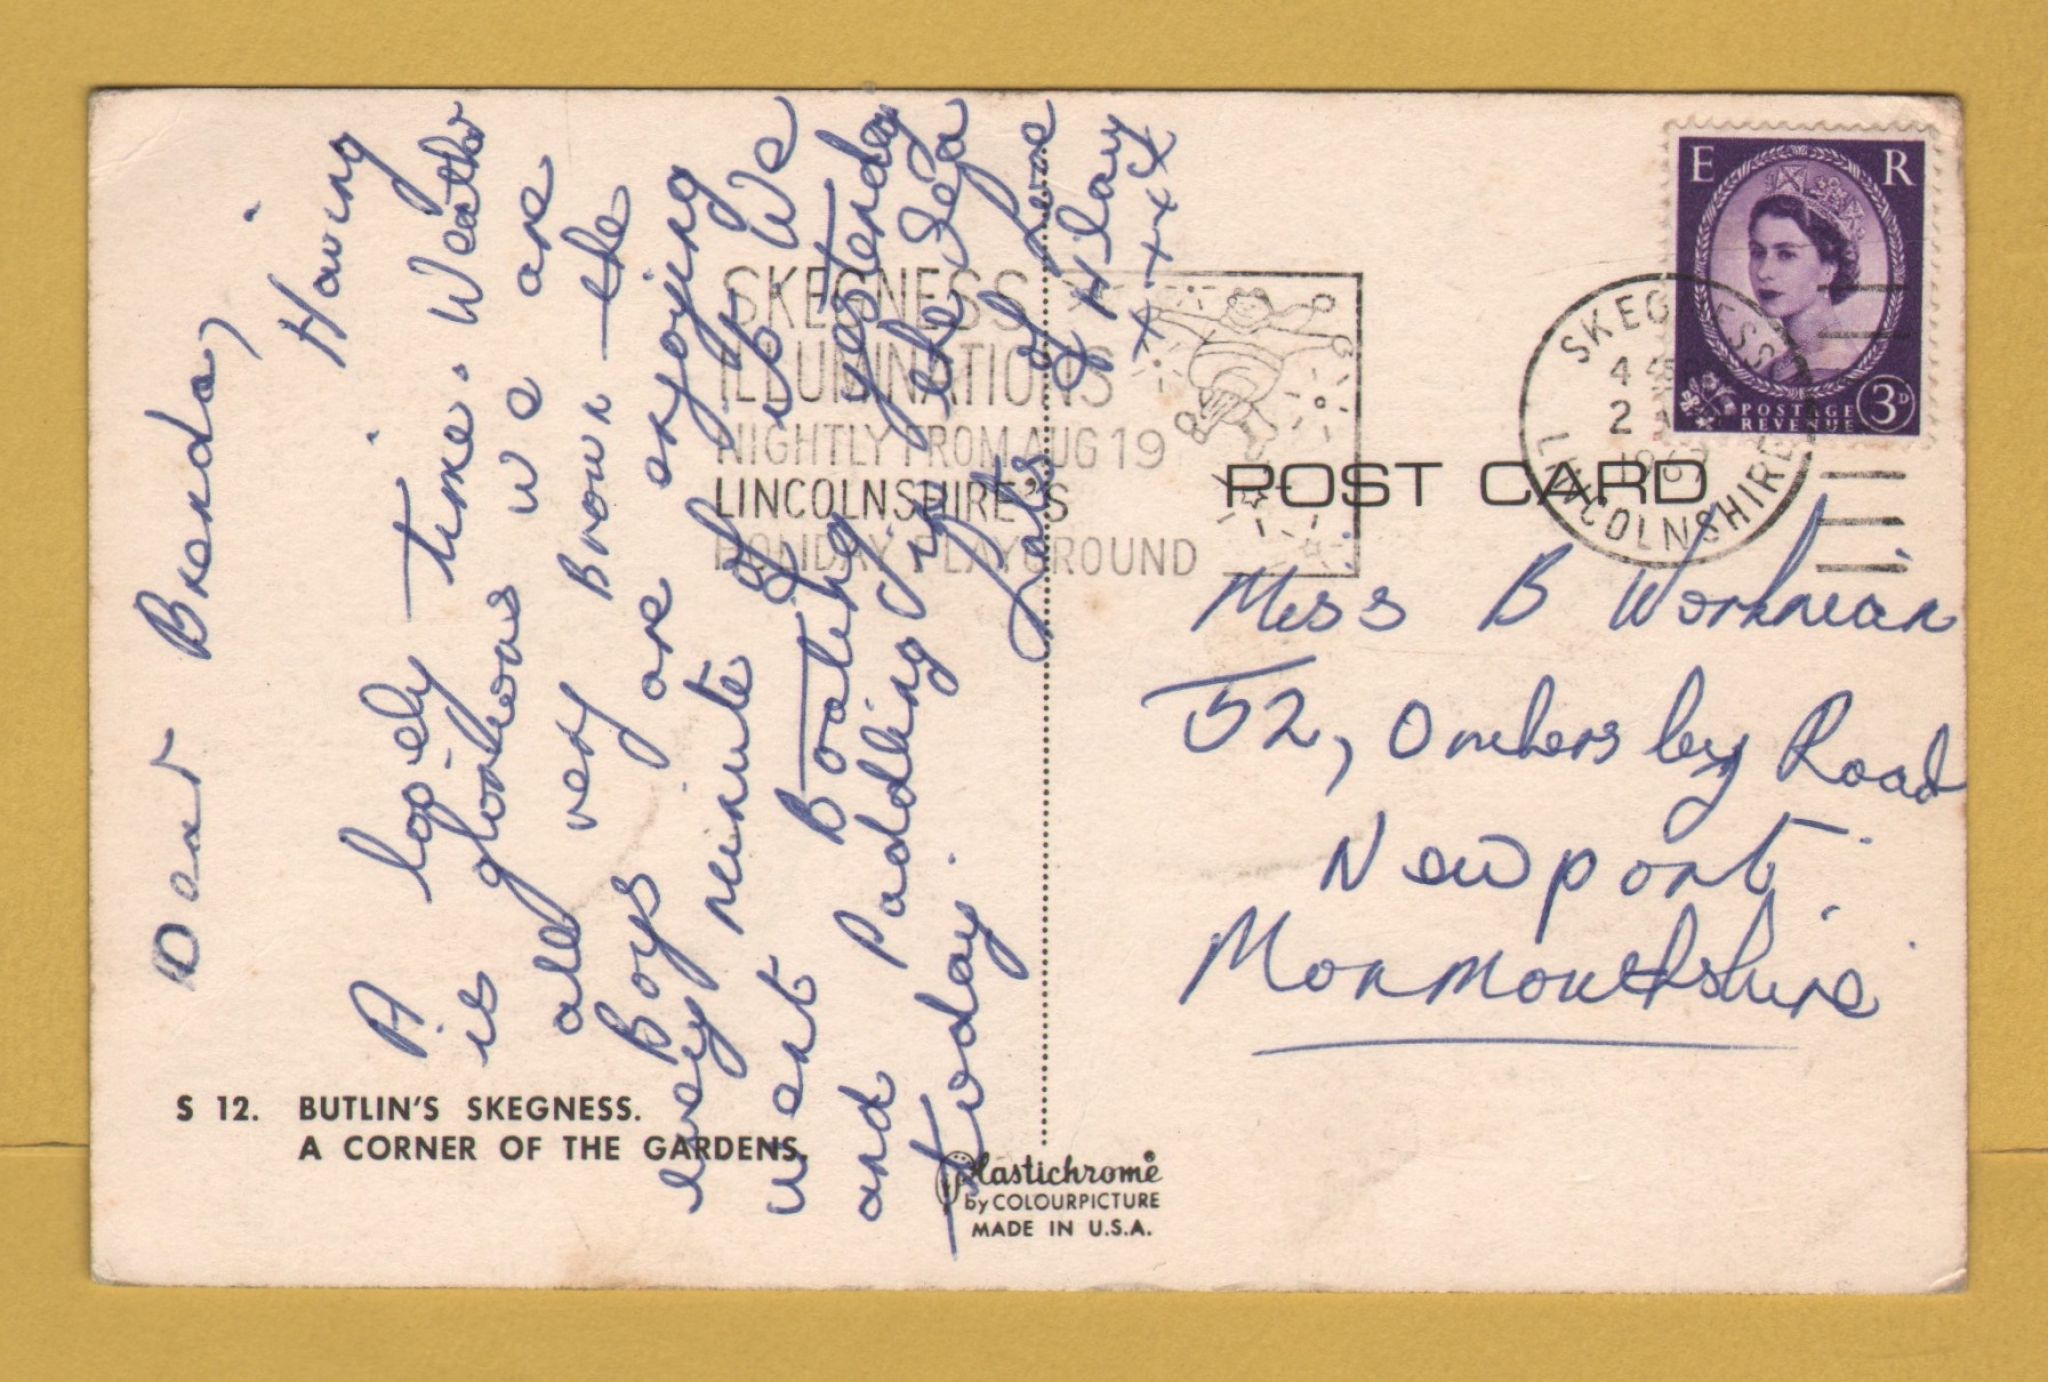 Dear Brenda,
Having
A lovely time. Weather
is glorious we are
all very Brown the
Boys are enjoying
every minute of it We
went Boating yesterday
and Paddling in the Sea
today.
Lots of Love
Hilary
xxxx
S 12. BUTLIN'S SKEGNESS.
A CORNER OF THE GARDENS.
Plastichrome®
by COLOURPICTURE
MADE IN U.S.A.
SKEGNESS
ILLUMINATIONS
NIGHTLY FROM AUG 19
LINCOLNSHIRE'S
HOLIDAY PLAYGROUND
SKEGNESS
LINCOLNSHIRE
E R
POSTAGE
REVENUE
3D
POST CARD
Miss B Workman
52, Ombersley Road
Newport
Monmouthshire